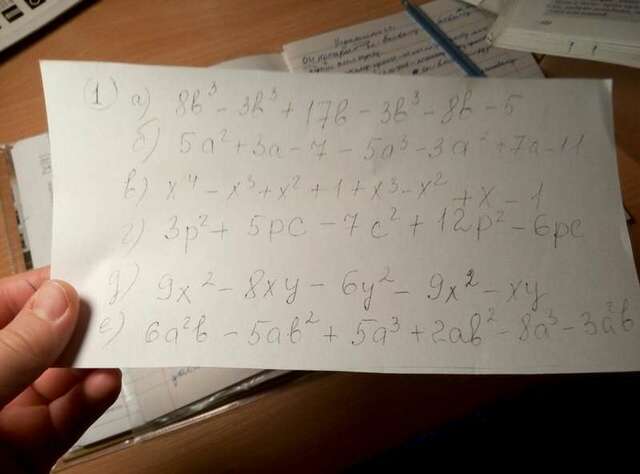 1) а) 8b³ - 3b³ + 17b - 3b³ - 8b - 5
б) 5a² + 3a - 7 - 5a³ - 3a² + 7a - 11
в) x⁴ - x³ + x² + 1 + x³ - x² + x - 1
г) 3p² + 5pc - 7c² + 12p² - 6pc
д) 9x² - 8xy - 6y² - 9x² - xy
е) 6a²b - 5ab² + 5a³ + 2ab² - 8a³ - 3a²b